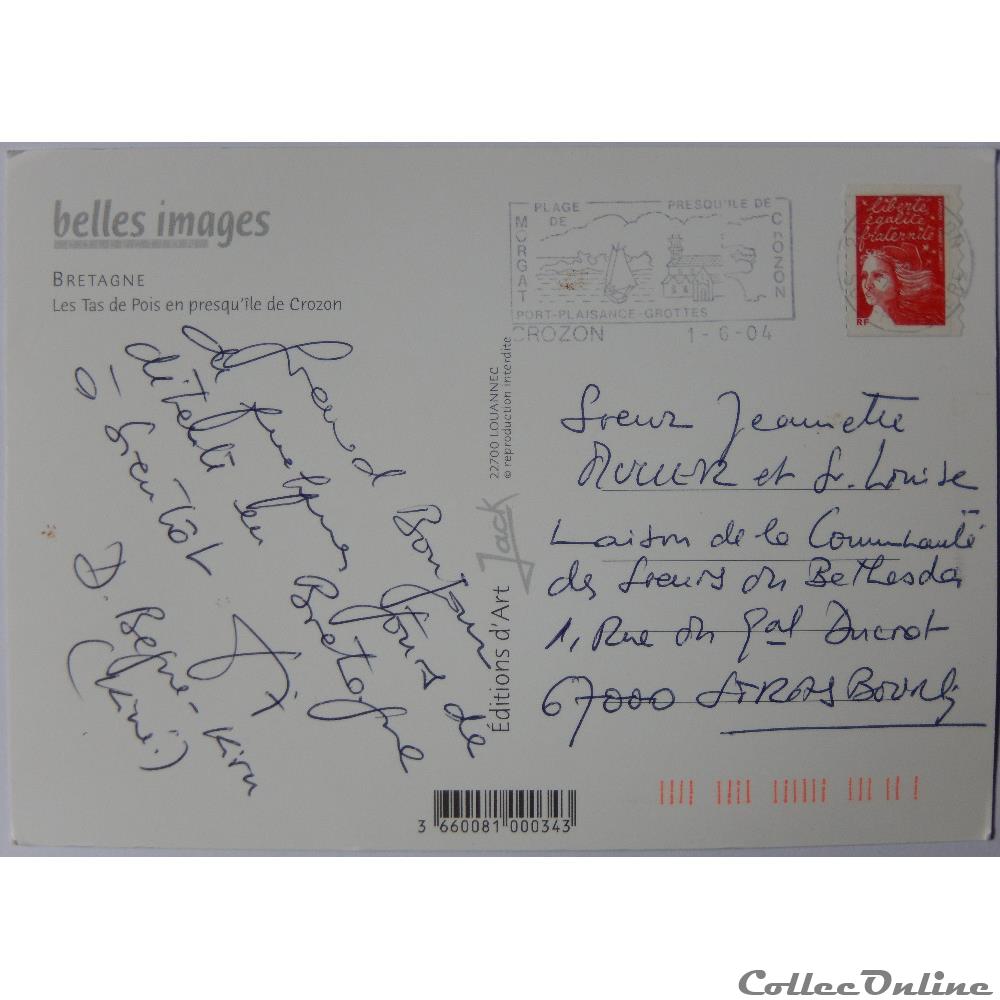 belles images
BRETAGNE
Les Tas de Pois en presqu'île de Crozon
Grand Bonjour
de quelques jours de
détente en Bretagne
à bientôt
D.
(Kiné.)
Éditions d'Art Jack
22700 LOUANNEC
© reproduction interdite
PLAGE DE MORGAT
PRESQU'ILE DE CROZON
PORT-PLAISANCE-GROTTES
CROZON 1-6-04
liberté
égalité
fraternité
RF
Sœur Jeannette
MULLER et Sr. Louise
Maison de la Communauté
des Sœurs du Bethesda
1, Rue du Gal Ducrot
67000 STRASBOURG
3 660081 000343
CollecOnline